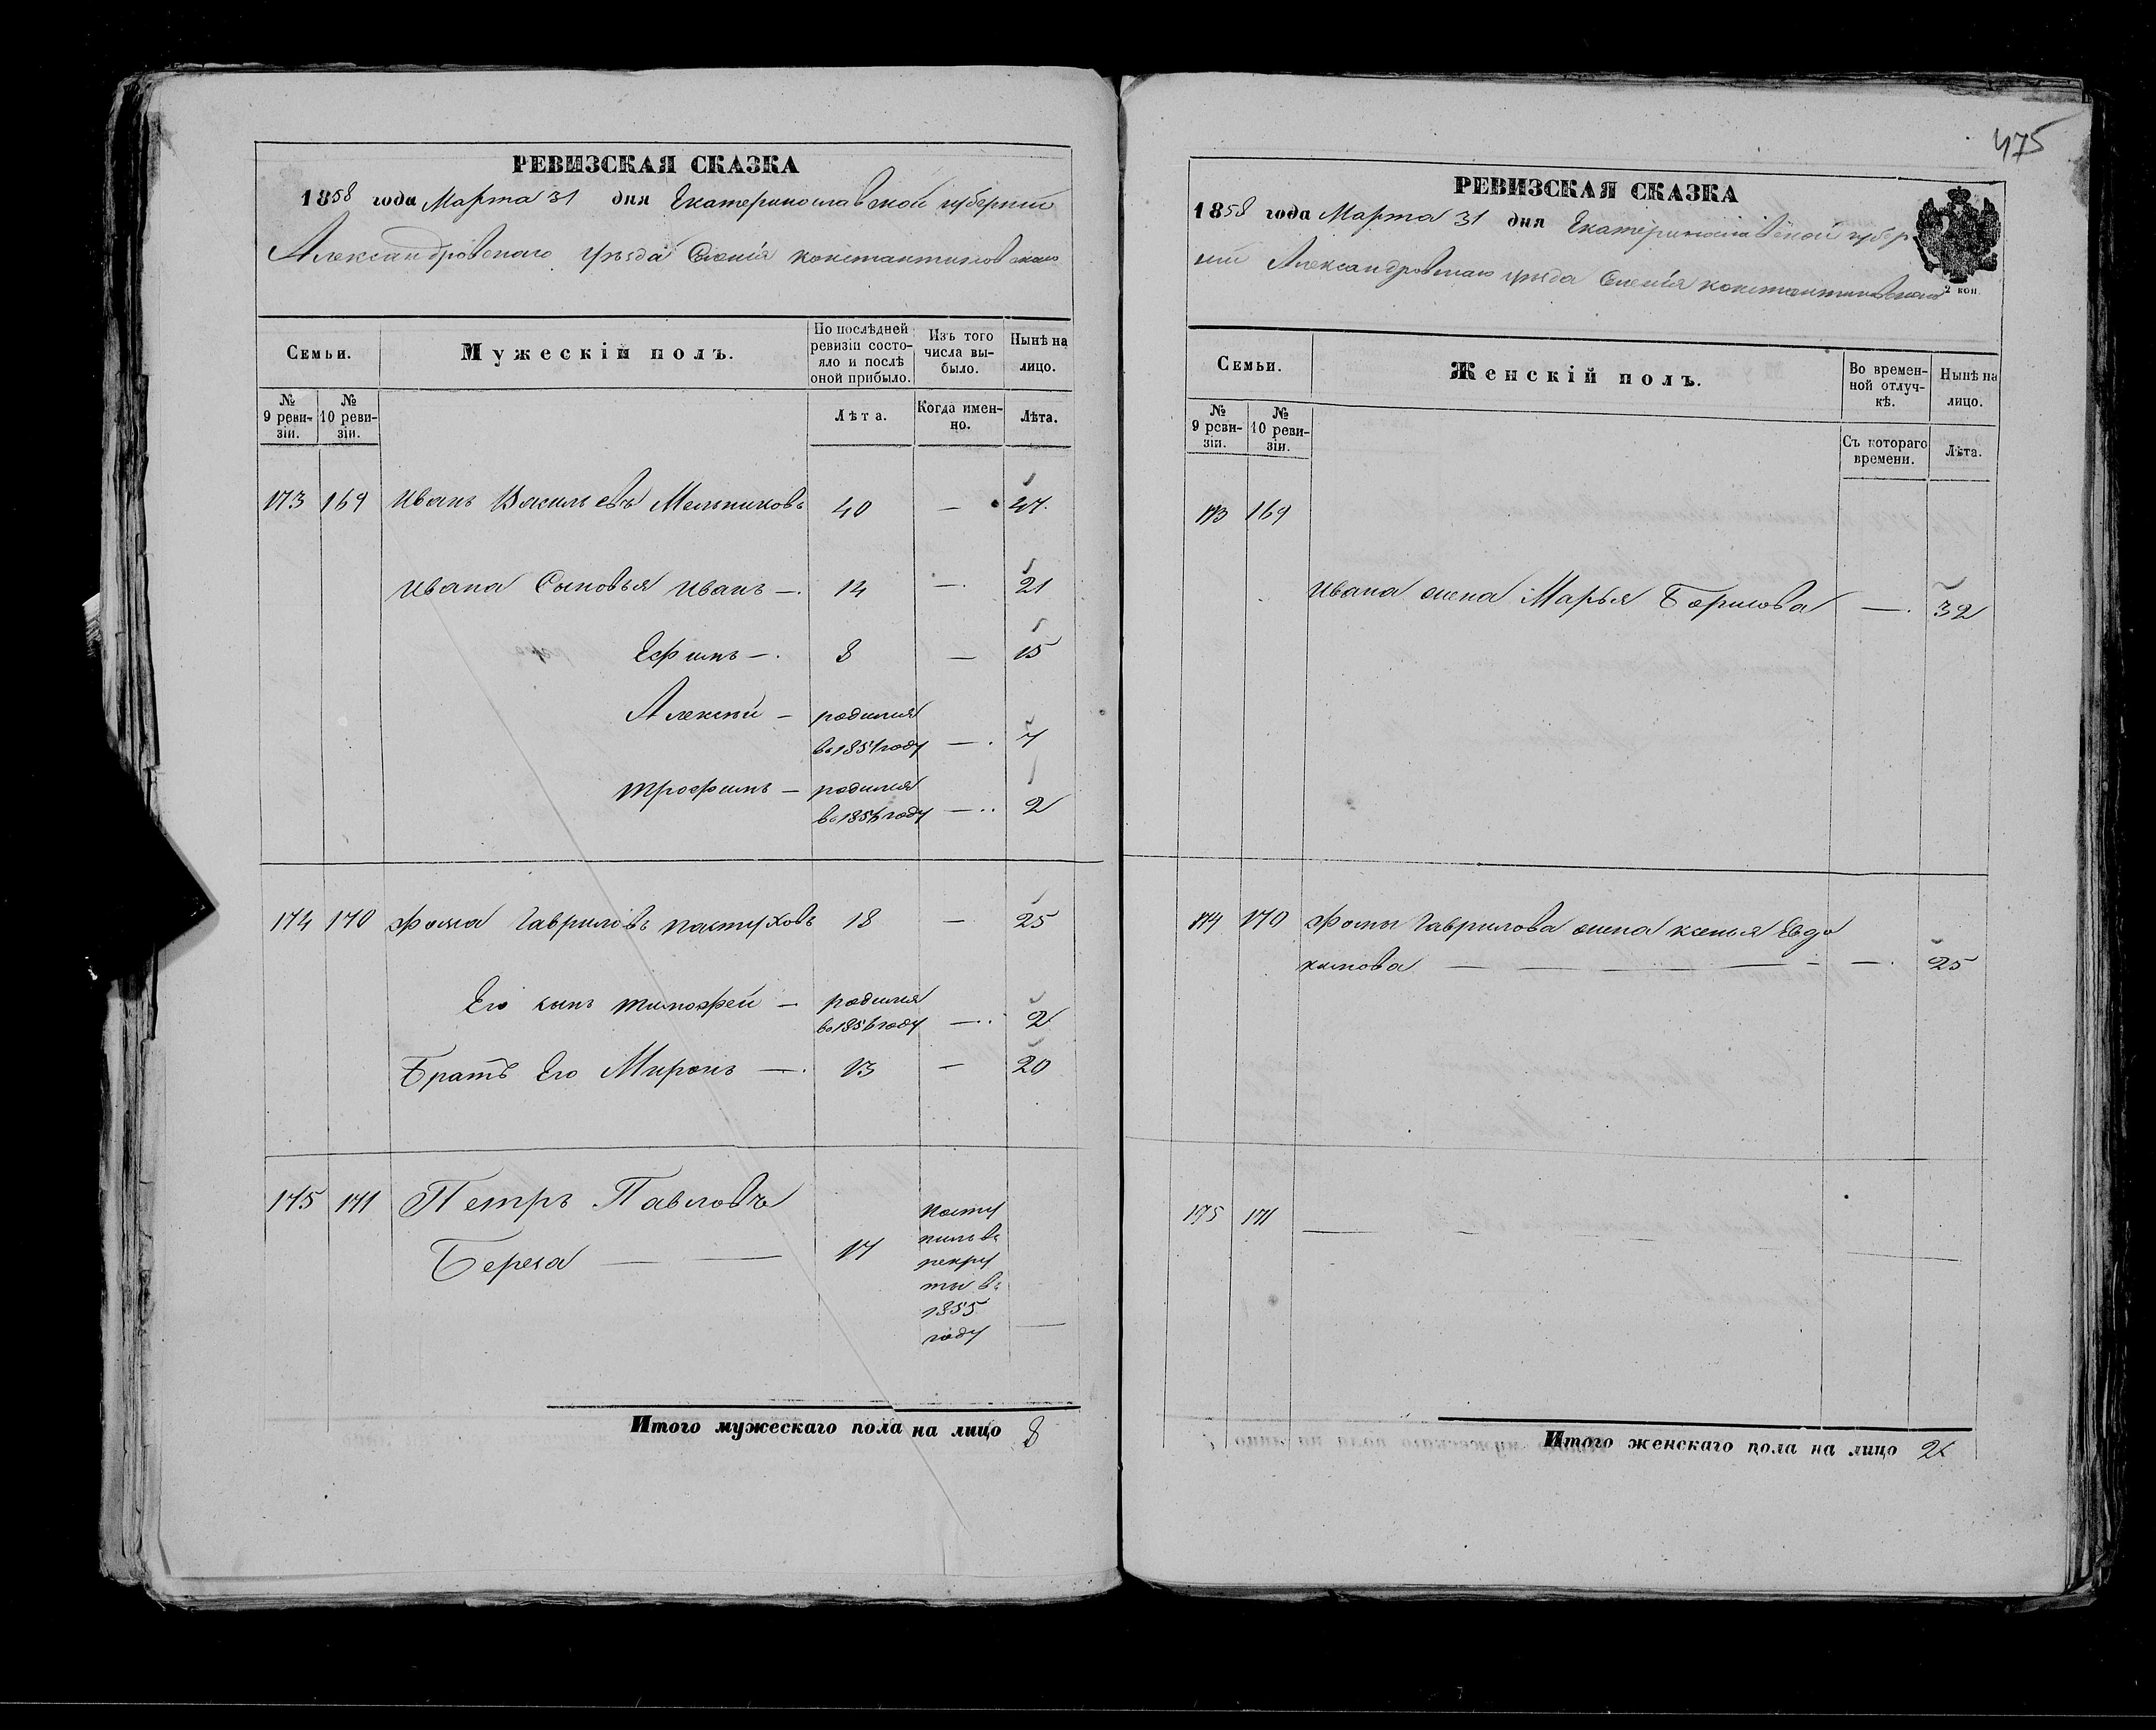 РЕВИЗСКАЯ СКАЗКА
1858 года Марта 31 дня Екатеринославской губернии
Александровскаго уѣзда Селенія Константиновскаго
Семьи.
Мужескій полъ.
По послѣдней ревизіи состояло и послѣ оной прибыло.
Изъ того числа выбыло.
Нынѣ на лицо.
№ 9 ревизіи.
№ 10 ревизіи.
Лѣта.
Когда именно.
Лѣта.
173 169 Иванъ Васильевъ Мельниковъ 40 — 47
Ивана Сыновья Иванъ — 14 — 21
Ефимъ — 8 — 15
Алексѣй — родился
въ 1851 году — 7
Трофимъ — родился
въ 1856 году — 2
174 170 Фома Гавриловъ Пастуховъ 18 — 25
Его сынъ Тимофей — родился
въ 1856 году — 2
Братъ Его Миронъ — 13 — 20
175 171 Петръ Павловъ
Береза — 17
посту
пилъ въ
рекру
ты въ
1855
году —
Итого мужескаго пола на лицо 8
475
РЕВИЗСКАЯ СКАЗКА
1858 года Марта 31 дня Екатеринославской губер
ніи Александровскаго уѣзда Селенія Константиновскаго
2 коп.
Семьи.
Женскій полъ.
Во временной отлучкѣ.
Нынѣ на лицо.
№ 9 ревизіи.
№ 10 ревизіи.
Съ котораго времени.
Лѣта.
173 169
Ивана жена Марья Борисова — 32
174 170 Фомы Гаврилова жена Ксенья Евдо
кимова — 25
175 171 —
Итого женскаго пола на лицо 2